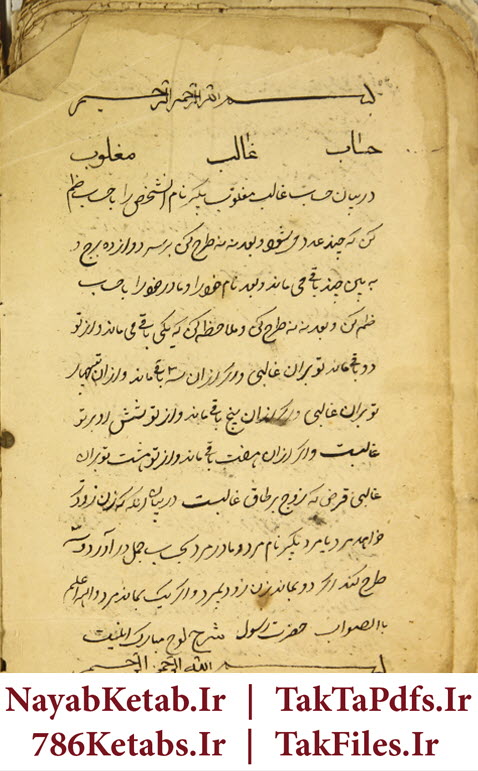 بسم الله الرحمن الرحیم
حساب غالب مغلوب
در بیان حساب غالب مغلوب بگیر نام آن شخص را بحساب
کن که چند عدد میشود و بعد نه نه طرح کن
به بین چند باقی می ماند و بعد نام خود را و مادر خود را بحساب
کن و بعد نه نه طرح کن و ملاحظه کن که یکی باقی می ماند و از تو
دو باقی ماند تو بران غالبی و اگر از ان سه باقی ماند و از ان چهار
تو بران غالبی و اگر از ان پنج باقی ماند و از تو شش او بر تو
غالبست و اگر از ان هفت باقی ماند و از تو هشت تو بران
غالبی که زوج بر طاق غالبست در بیان آنکه که زن زودتر
خواهد مرد یا مرد بگیر نام مرد و مادر مرد بحساب جمل در آورد و سه
طرح کند اگر دو بماند زن زود بمیرد و اگر یک بماند مرد والله اعلم
باالصواب حضرت رسول شرح لوح مبارک اینست
بسم الله الرحمن الرحیم
NayabKetab.Ir | TakTaPdfs.Ir
786Ketabs.Ir | TakFiles.Ir